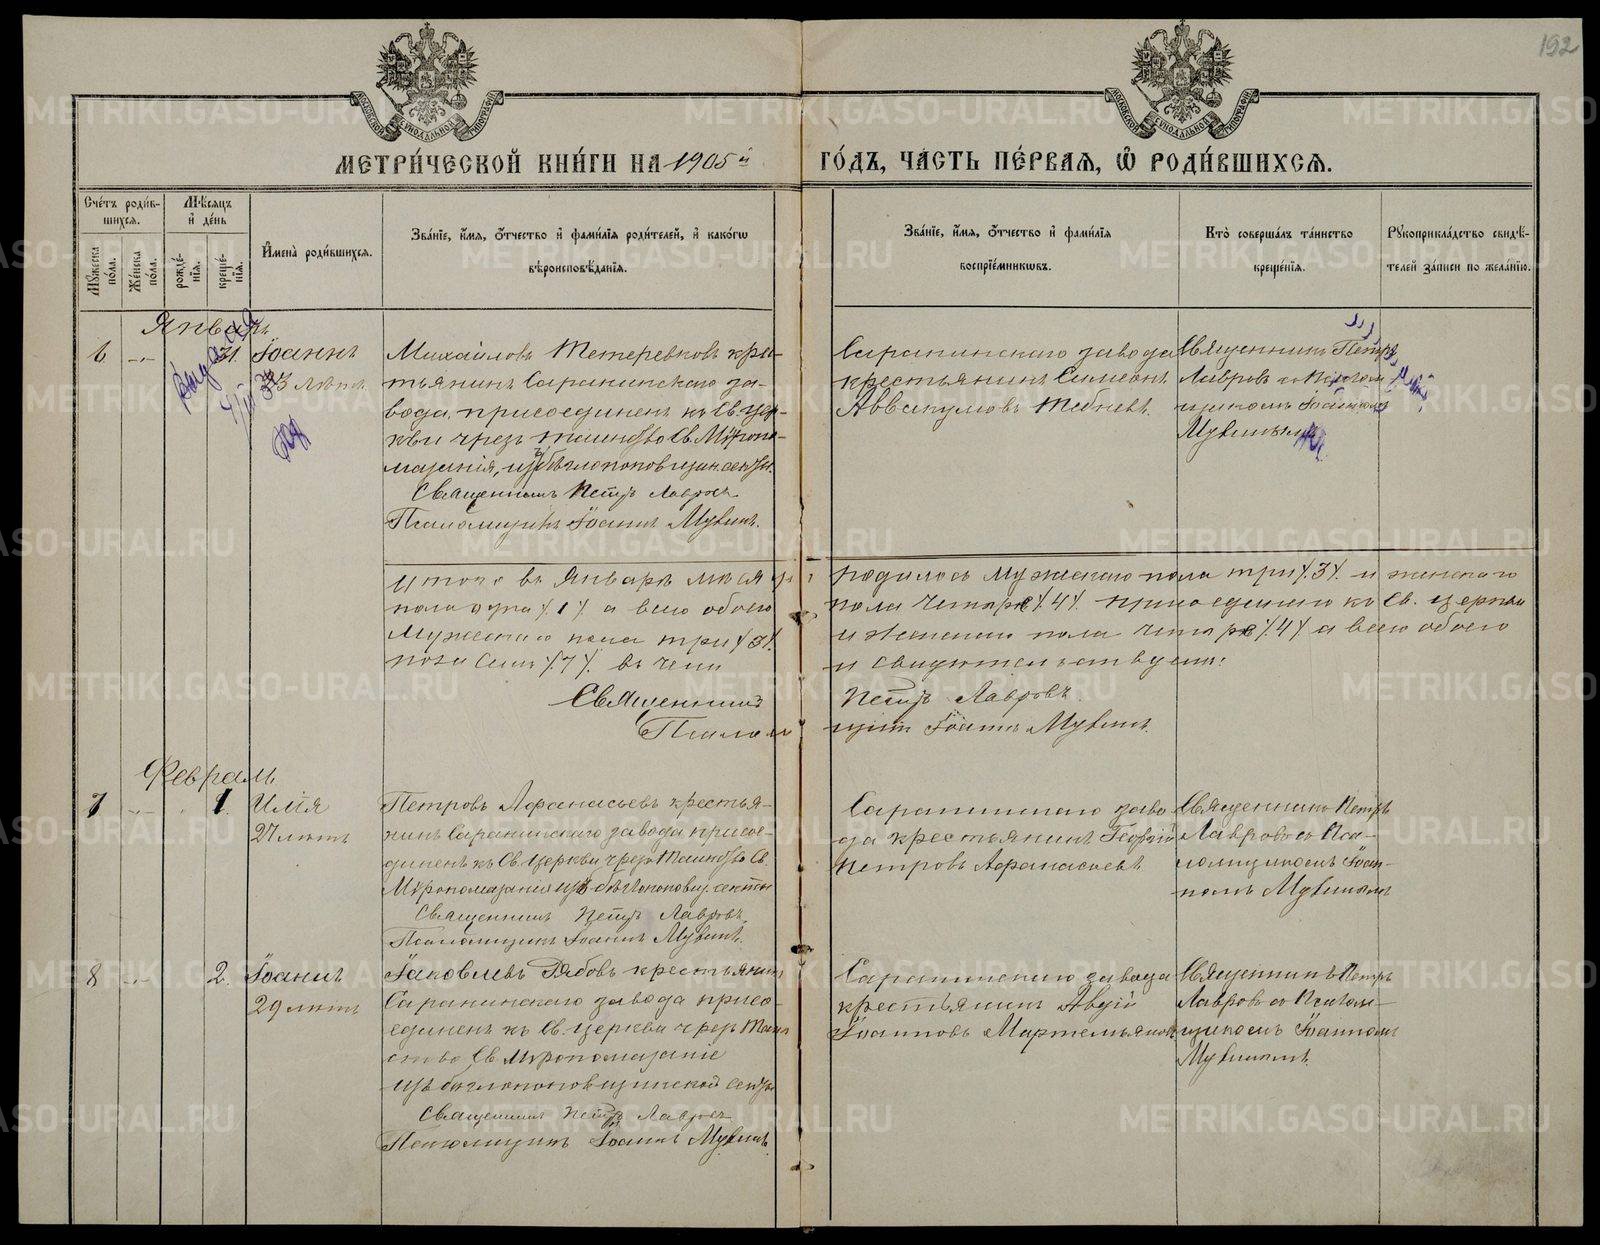 192
МЕТРИ́ЧЕСКОЙ КНИ́ГИ НА 1905й ГО́ДЪ, ЧА́СТЬ ПЕ́РВАЯ, Ѽ РОДИ́ВШИХСЯ.
Сче́тъ роди́вшихся.
Мꙋ́жеска по́ла.
Же́нска по́ла.
Мѣ́сяцъ и҆ де́нь
рожде́нїя.
креще́нїя.
И҆мена̀ роди́вшихся.
Зва́нїе, и҆́мя, ѻ҆́тчество и҆ фами́лїя роди́телей, и҆ како́гѡ
вѣроисповѣ́данїя.
Зва́нїе, и҆́мя, ѻ҆́тчество и҆ фами́лїя
воспрїе́мникѡвъ.
Кто̀ соверша́лъ та́инство
креще́нїя.
Рꙋкоприкла́дство свидѣ́-
телей за́писи по жела́нїю.
Январь
6
31.
Іоаннъ
33 лѣтъ
Михайловъ Тетеревковъ крес-
тьянинъ Саранинскаго за-
вода, присоединенъ къ Св. Цер-
кви чрезъ таинство Св. Мѵропо-
мазанія, изъ бѣглопоповщин. секты.
Священникъ Петръ Лавровъ
Псаломщикъ Іоаннъ Мувинъ.
Саранинскаго завода
крестьянинъ Симеонъ
Аввакумовъ Тебневъ.
Священникъ Петръ
Лавровъ съ Псалом-
щикомъ Іоанномъ
Мувинымъ
Итого въ Январѣ мѣсяцѣ родилось Мужескаго пола три /3/. и женскаго
пола одна /1/ а всего обоего пола четыре /4/. присоединено къ Св. церкви
Мужескаго пола три /3/. и женскаго пола четыре /4/ а всего обоего
пола семь /7/. въ чемъ и свидѣтельствуемъ:
Священникъ Петръ Лавровъ.
Псаломщикъ Іоаннъ Мувинъ.
Февраль
7
1.
Илія
27 лѣтъ
Петровъ Афанасьевъ крестья-
нинъ Саранинскаго завода присое-
диненъ къ Св. Церкви чрезъ Таинство Св.
Мѵропомазанія изъ бѣглопоповщ. секты
Священникъ Петръ Лавровъ.
Псаломщикъ Іоаннъ Мувинъ.
Саранинскаго заво
да крестьянинъ Георгій
Петровъ Афанасьевъ
Священникъ Петръ
Лавровъ съ Пса-
ломщикомъ Іоан-
номъ Мувинымъ
8
2.
Іоаннъ
29 лѣтъ
Іаковлевъ Рябовъ крестьянинъ
Саранинскаго завода присо-
единенъ къ Св. Церкви чрезъ Таин
ство Св. Мѵропомазаніе
изъ бѣглопоповщинской секты
Священникъ Петръ Лавровъ
Псаломщикъ Іоаннъ Мувинъ.
Саранинскаго завода
крестьянинъ Авдій
Іоанновъ Мартемьяновъ
Священникъ Петръ
Лавровъ съ Псалом-
щикомъ Іоанномъ
Мувинымъ.
METRIKI.GASO-URAL.RU